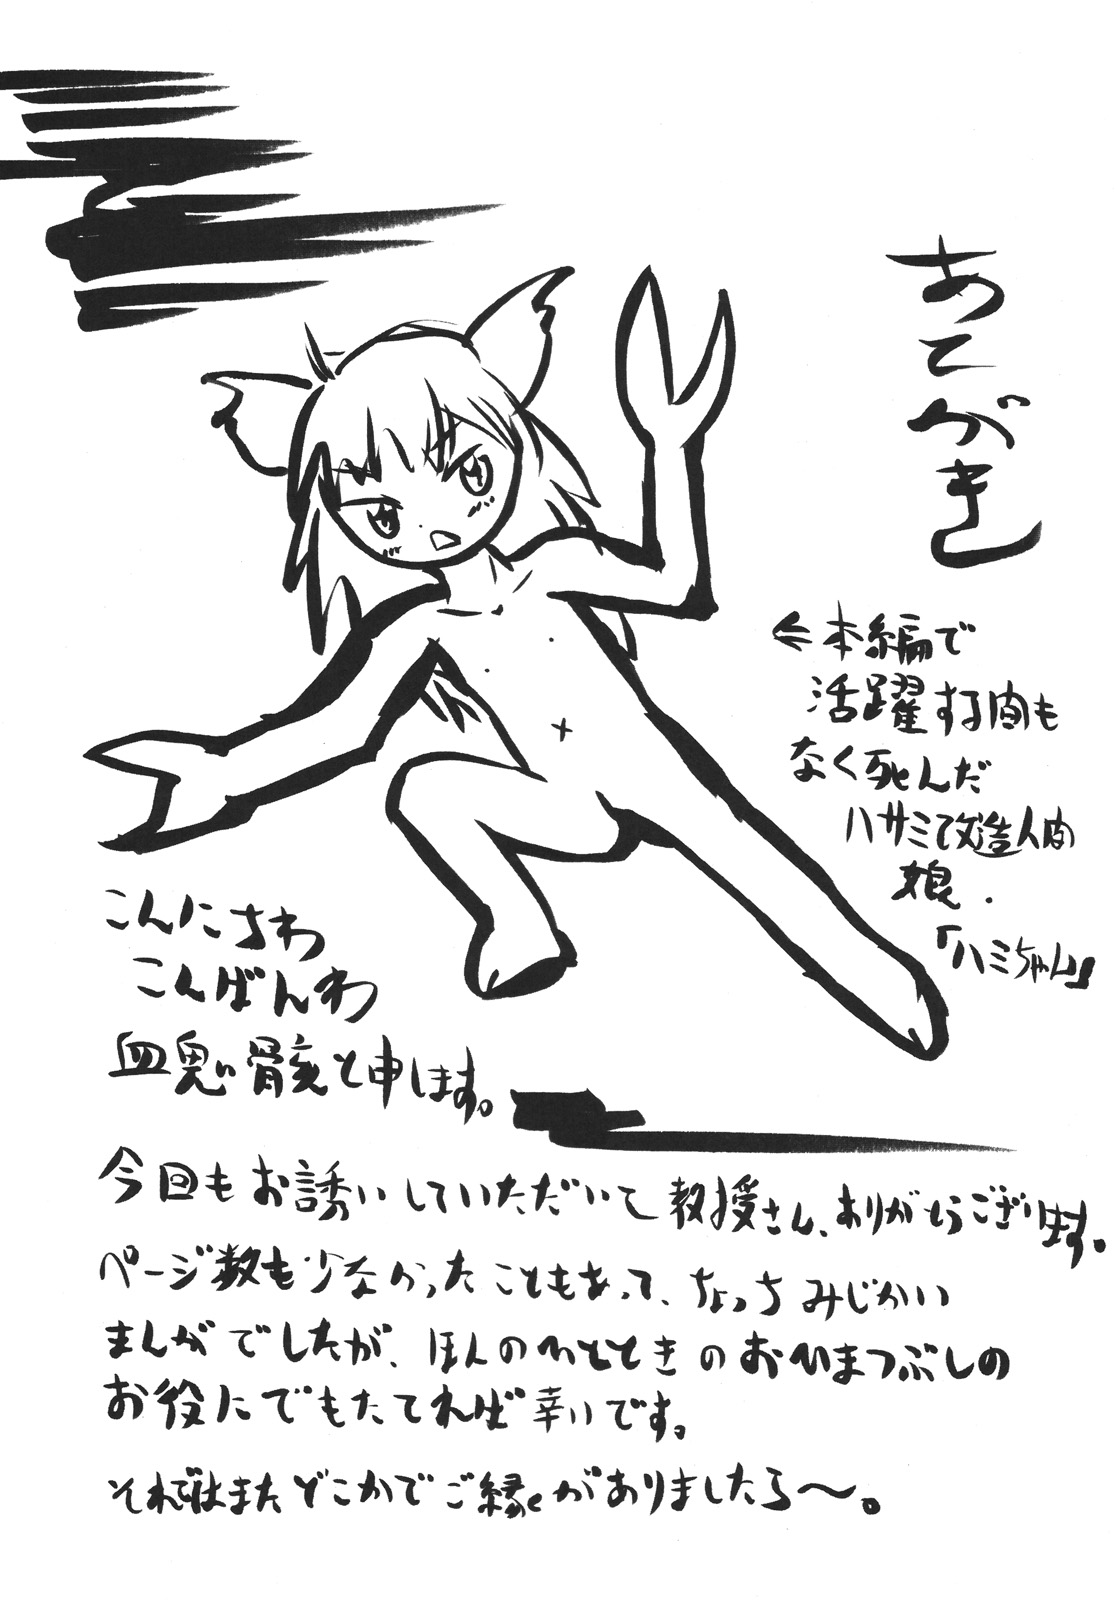 あとがき
⇐本編で
活躍する間も
なく死んだ
ハサミ改造人間
娘.
「ハミちゃん」
こんにちわ
こんばんわ
血鬼骨亥と申します。
今回もお誘いしていただいて教授さん、ありがとうございます。
ページ数も少なかったこともあって、ちょっちみじかい
まんがでしたが、ほんのひとときのおひまつぶしの
お役にでもたてれば幸いです。
それではまたどこかでご縁がありましたら〜。